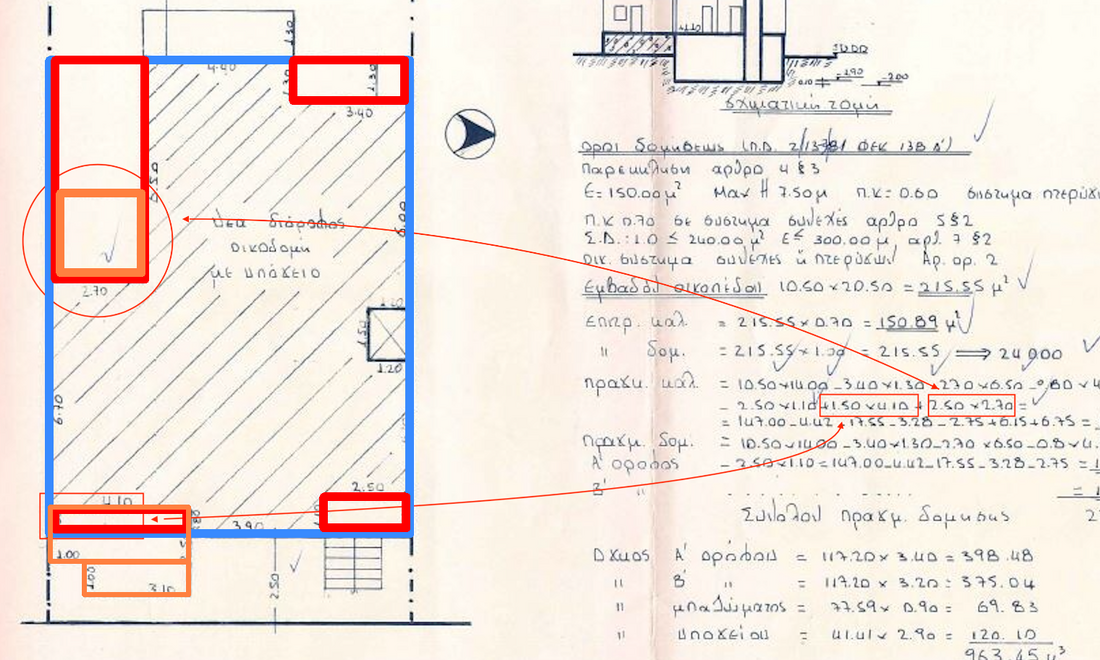 1.30
4.40
1.30
1.30
3.40
6.50
6.00
Νέα διόροφος
οικοδομή
με υπόγειο
2.70
1.20
1.50
1.20
6.70
2.50
4.10
.80
3.90
1.00
1.00
3.10
2.50
4.10
±0.00
-2.90
-2.00
σχηματική τομή
Όροι δομήσεως (Π.Δ. 2/13-3-81 ΦΕΚ 138 Δ')
Παρέκκλιση άρθρο 4 § 3
Ε=150.00 μ² Max H 7.50 μ Π.Κ=0.60 σύστημα πτερύγων
Π.Κ 0.70 σε σύστημα συνεχές άρθρο 5 § 2
Σ.Δ.: 1.0 ≤ 240.00 μ² Ε ≤ 300.00 μ, αρθ. 7 § 2
Οικ. σύστημα συνεχές ή πτερύγων Αρ. αρ. 2
Εμβαδόν οικοπέδου 10.50 x 20.50 = 215.55 μ²
Επιτρ. καλ = 215.55 x 0.70 = 150.89 μ²
" δομ. = 215.55 x 1.00 = 215.55 ⟹ 240.00
πραγμ. καλ = 10.50 x 14.00 - 3.40 x 1.30 - 2.70 x 6.50 - 0.80 x 4
- 2.50 x 1.10 + 1.50 x 4.10 + 2.50 x 2.70 =
= 147.00 - 4.42 - 17.55 - 3.28 - 2.75 + 6.15 + 6.75 =
Πραγμ. δομ. = 10.50 x 14.00 - 3.40 x 1.30 - 2.70 x 6.50 - 0.8 x 4.
Α' όροφος - 2.50 x 1.10 = 147.00 - 4.42 - 17.55 - 3.28 - 2.75 =
Β' "
Σύνολον πραγμ. δόμησης
Όγκος Α' ορόφου = 117.20 x 3.40 = 398.48
" Β' " = 117.20 x 3.20 = 375.04
" μπαζώματος = 77.59 x 0.90 = 69.83
" υπογείου = 41.41 x 2.90 = 120.10
963.45 μ³